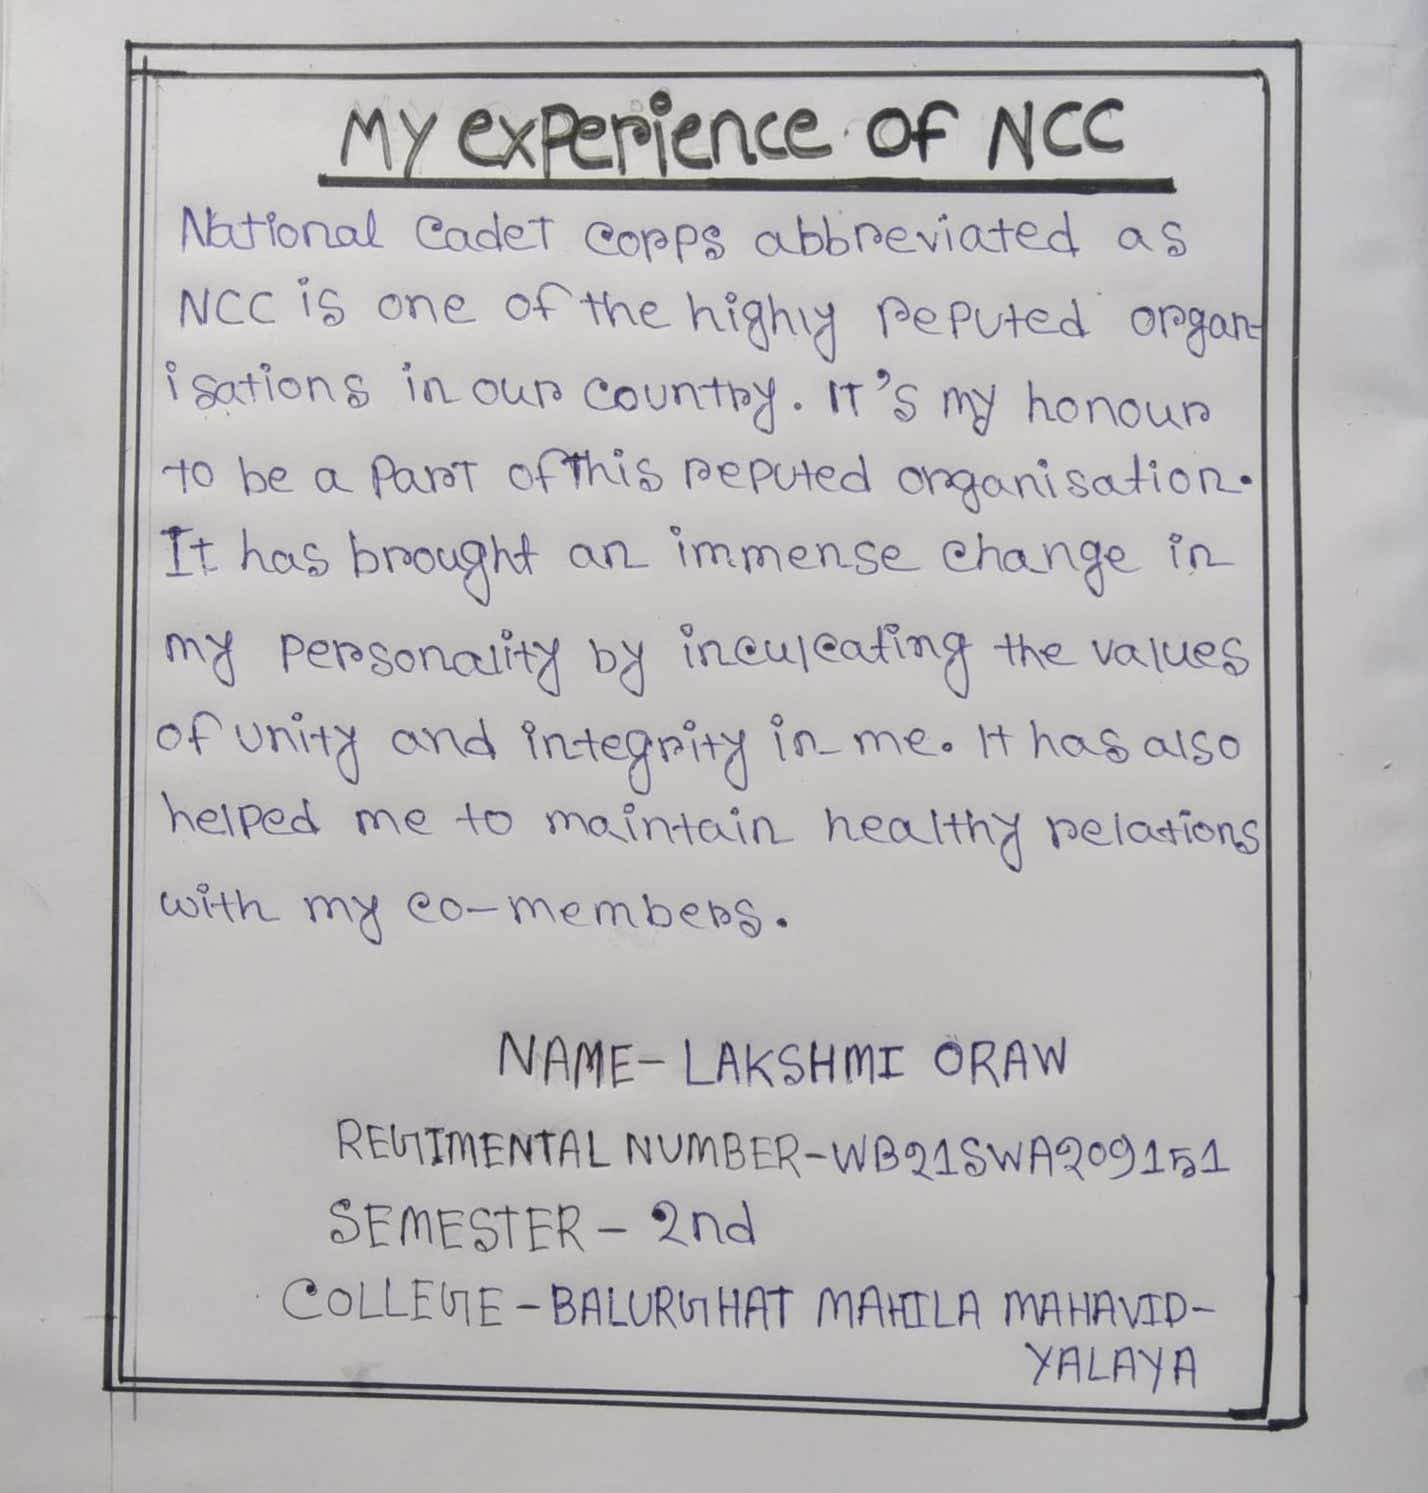 My experience of NCC
National Cadet Corps abbreviated as
NCC is one of the highly reputed organ-
isations in our country. It's my honour
to be a part of this reputed organisation.
It has brought an immense change in
my personality by inculcating the values
of unity and integrity in me. It has also
helped me to maintain healthy relations
with my co-members.
NAME- LAKSHMI ORAW
REGIMENTAL NUMBER-WB21SWA209151
SEMESTER - 2nd
COLLEGE - BALURGHAT MAHILA MAHAVID-
YALAYA